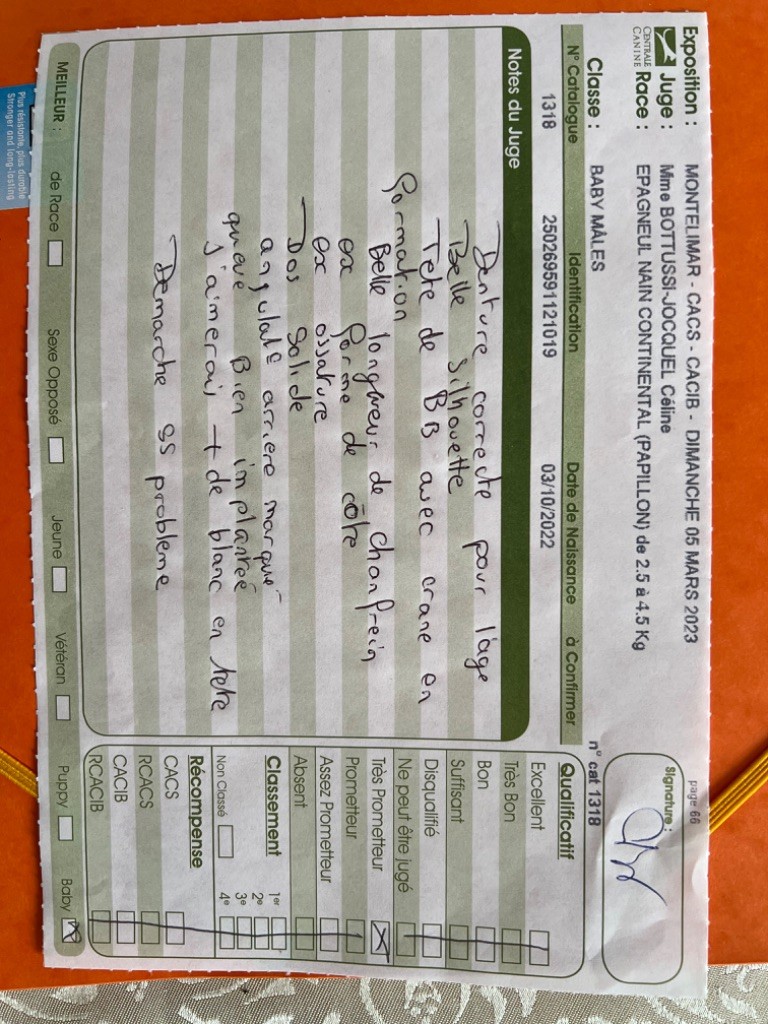 Exposition : MONTELIMAR - CACS - CACIB - DIMANCHE 05 MARS 2023
page 66
Juge : Mme BOTTUSSI-JOCQUEL Céline
CENTRALE CANINE
Race : EPAGNEUL NAIN CONTINENTAL (PAPILLON) de 2.5 à 4.5 Kg
Signature :
Classe : BABY MÂLES
n° cat 1318
N° Catalogue Identification Date de Naissance à Confirmer
1318 250269591121019 03/10/2022
Notes du Juge
Denture correcte pour l'age
Belle silhouette
Tête de BB avec crane en
formation
Belle longueur de chanfrein
ex forme de côte
ex ossature
Dos solide
angulat° arriere marqué
queue Bien implantée
j'aimerais + de blanc en tete
Demarche ss probleme
Qualificatif
Excellent
Très Bon
Bon
Suffisant
Disqualifié
Ne peut être jugé
Très Prometteur
Prometteur
Assez Prometteur
Absent
Classement
1er
2e
3e
4e
Non Classé
Récompense
CACS
RCACS
CACIB
RCACIB
MEILLEUR : de Race Sexe Opposé Jeune Vétéran Puppy Baby
Plus résistante, plus durable
Stronger and long-lasting